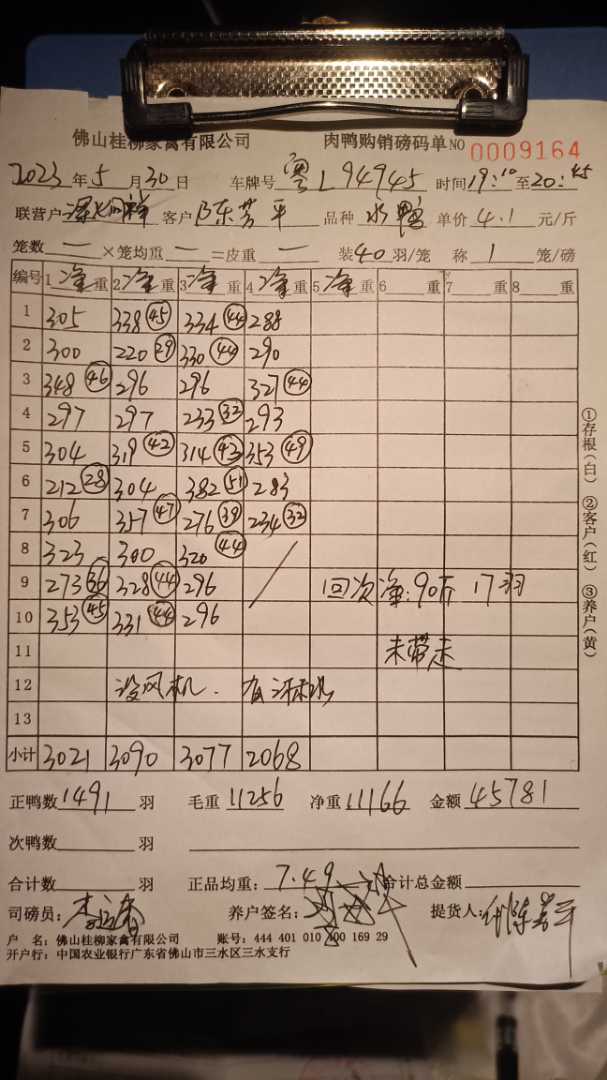 佛山桂柳家禽有限公司 肉鸭购销磅码单 NO 0009164
2023年5月30日 车牌号 粤L94945 时间19:10至20:45
联营户 客户 陈芳平 品种 水鸭 单价 4.1 元/斤
笼数 一 ×笼均重 一 =皮重 一 装40羽/笼 称 1 笼/磅
编号 1净重 2净重 3净重 4净重 5净重 6 重 7 重 8 重
1 305 338(45) 334(44) 288
2 300 220(29) 330(44) 290
3 348(46) 296 296 327(44)
4 297 297 233(32) 293
5 304 319(42) 314(42) 353(49)
6 212(28) 304 382(51) 283
7 306 357(47) 276(39) 234(32)
8 323 300 320(44)
9 273(36) 328(44) 296 回次净:90斤 17羽
10 353(45) 331(44) 296
11 未带走
12 没风机. 有淋
13
小计 3021 3090 3077 2068
正鸭数 1491 羽 毛重 11256 净重 11166 金额 45781
次鸭数 羽
合计数 羽 正品均重: 7.49 合计总金额
司磅员: 养户签名: 提货人: 陈芳平
户 名: 佛山桂柳家禽有限公司 账号: 444 401 010 400 169 29
开户行: 中国农业银行广东省佛山市三水区三水支行
①存根(白) ②客户(红) ③养户(黄)